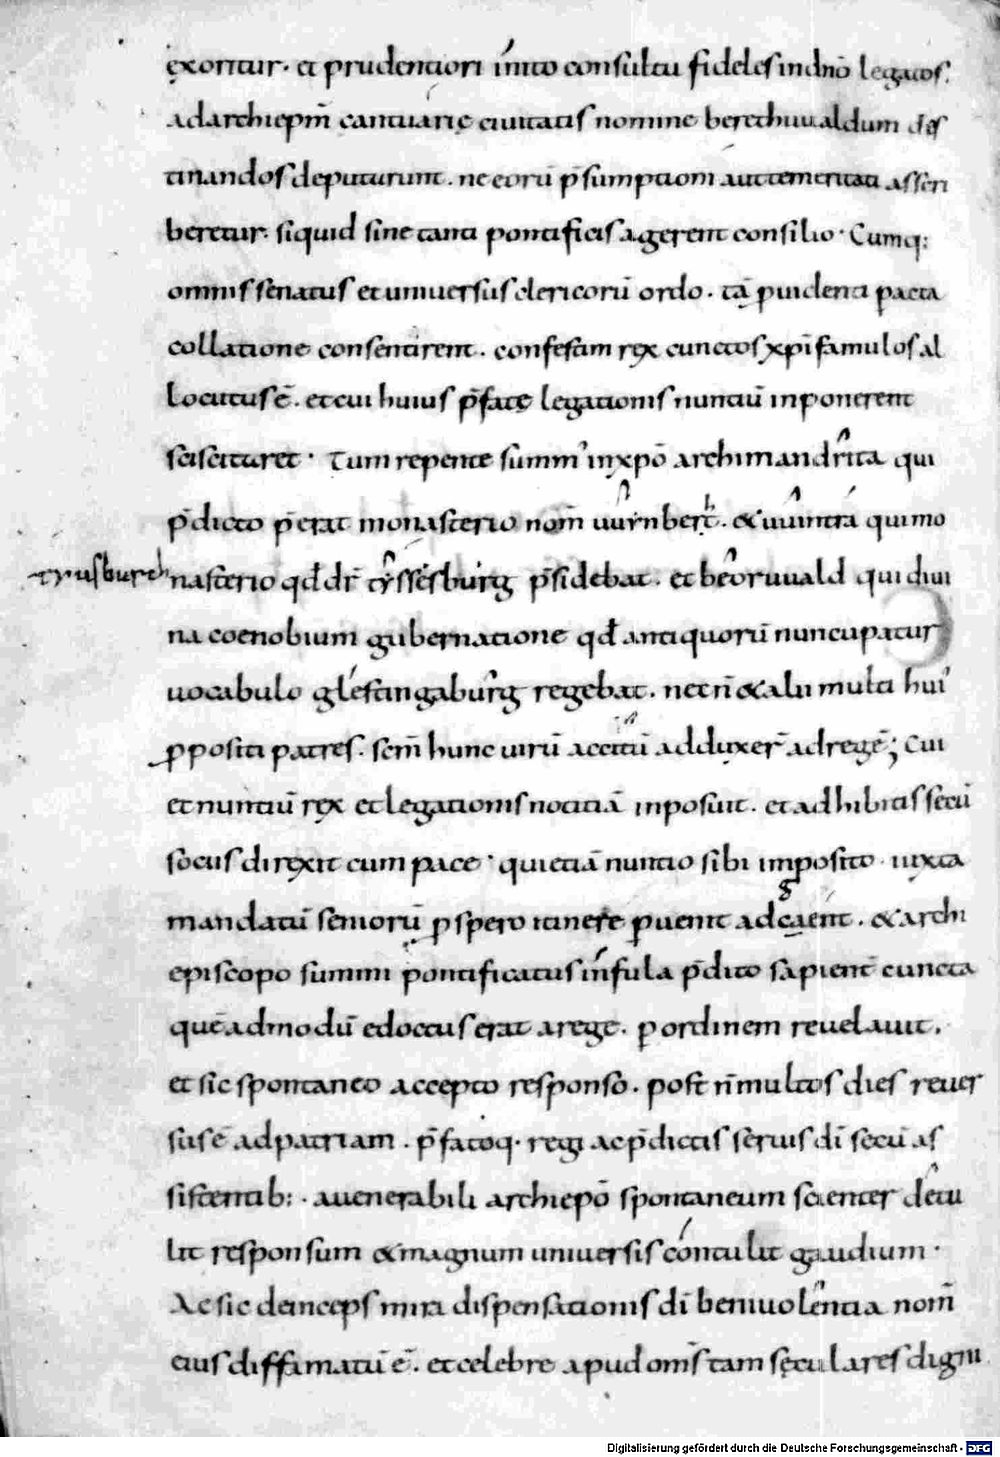 exoritur. et prudentiori inito consultu fideles in dnō legatos.
ad archiepm̄ cantuarię ciuitatis nomine berethuualdum des
tinandos deputarunt. ne eorū p̄sumptioni aut temeritati asscri
beretur. siquid sine tanti pontificis agerent consilio. Cumq:
omnis senatus et uniuersus clericorū ordo. tā puidenti pacta
collatione consentirent. confesam rex cunctos xp̄i famulos al
locutus ē. et cui huius p̄fatę legationis nuntiū inponerent
sciscitaret. Tum repente summ' in xp̄o archimandrita qui
p̄dicto p̄erat monasterio nom̄ uuinbert̄. & uuintra qui mo
tyusburch nasterio qd̄ dr̄ tyssesburg p̄sidebat. et beoruuald qui diui
na coenobium gubernatione qd̄ antiquorū nuncupatur
uocabulo glestingaburg regebat. nec n̄ & alii multi hui'
ppositi patres. scm̄ hunc uirū accitū adduxer̄ ad regē; Cui
et nuntiū rex et legationis notitiā inposuit. et adhibitis secū
sociis direxit cum pace. qui etiā nuntio sibi imposito. iuxta
mandatū seniorū pspero itinere puenit ad caent. & archi
episcopo summi pontificatus infula p̄dito sapient̄ cuncta
quēadmodū edoctus erat a rege. p ordinem reuelauit.
et sic spontaneo accepto responso. post n̄ multos dies reuer
sus ē ad patriam. p̄fatoq. regi ac p̄dictis seruis dī secū as
sistentib:. a uenerabili archiepō spontaneum scienter detu
lit responsum & magnum uniuersis contulit gaudium.
Ac sic deinceps mira dispensationis dī beniuolentia nom̄
eius diffamatū ē. et celebre apud om̄s tam sęculares digni
Digitalisierung gefördert durch die Deutsche Forschungsgemeinschaft - DFG